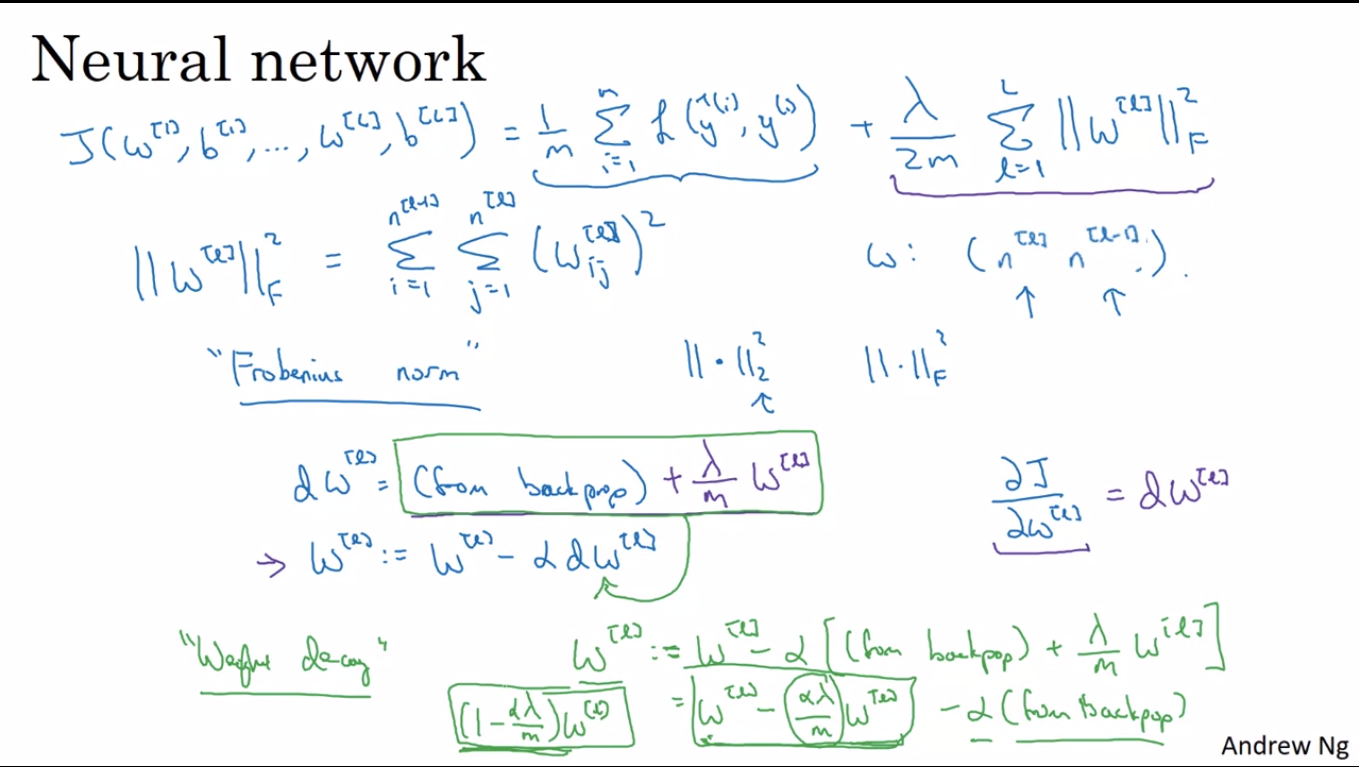 Neural network
J(w^[1], b^[1], ..., w^[L], b^[L]) = 1/m ∑_{i=1}^{m} ℒ(ŷ^(i), y^(i)) + λ/2m ∑_{l=1}^{L} ||w^[l]||_F^2
||w^[l]||_F^2 = ∑_{i=1}^{n^[l-1]} ∑_{j=1}^{n^[l]} (w_ij^[l])^2    w: (n^[l] n^[l-1]).
↑ ↑
"Frobenius norm"    ||·||_2^2    ||·||_F^2
↑
dw^[l] = (from backprop) + λ/m w^[l]    ∂J/∂w^[l] = dw^[l]
→ w^[l] := w^[l] - α dw^[l]
"Weight decay"    w^[l] := w^[l] - α [(from backprop) + λ/m w^[l]]
(1 - αλ/m) w^[l]    = w^[l] - αλ/m w^[l] - α (from backprop)
Andrew Ng